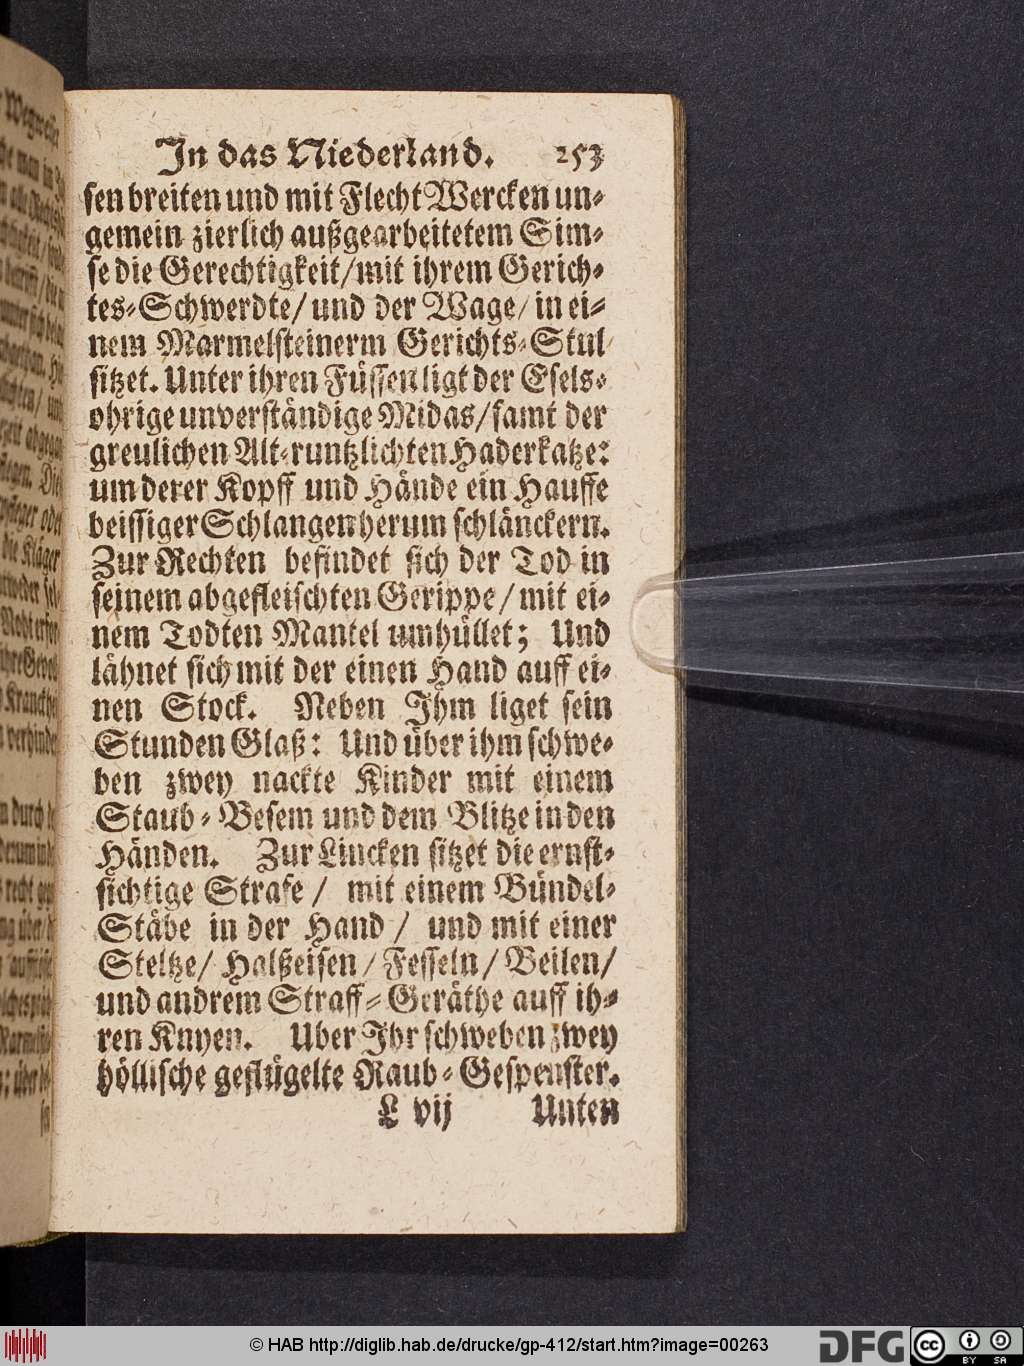 In das Niederland. 253
sen breiten und mit Flecht Wercken un-
gemein zierlich außgearbeitetem Sim-
se die Gerechtigkeit/ mit ihrem Gerich-
tes-Schwerdte/ und der Wage/ in ei-
nem Marmelsteinerm Gerichts-Stul
sitzet. Unter ihren Füssen ligt der Esels-
ohrige unverständige Midas/ samt der
greulichen Alt-runtzlichten Haderkatze:
um derer Kopff und Hände ein Hauffe
beissiger Schlangen herum schlänckern.
Zur Rechten befindet sich der Tod in
seinem abgefleischten Gerippe/ mit ei-
nem Todten Mantel umhüllet; Und
lähnet sich mit der einen Hand auff ei-
nen Stock. Neben Ihm liget sein
Stunden Glaß: Und über ihm schwe-
ben zwey nackte Kinder mit einem
Staub-Besem und dem Blitze in den
Händen. Zur Lincken sitzet die ernst-
sichtige Strafe/ mit einem Bündel-
Stäbe in der Hand/ und mit einer
Steltze/ Halßeisen/ Fesseln/ Beilen/
und andrem Straff-Geräthe auff ih-
ren Knyen. Uber Ihr schweben zwey
höllische geflügelte Raub-Gespenster.
L vij Unten
© HAB http://diglib.hab.de/drucke/gp-412/start.htm?image=00263
DFG
cc BY SA